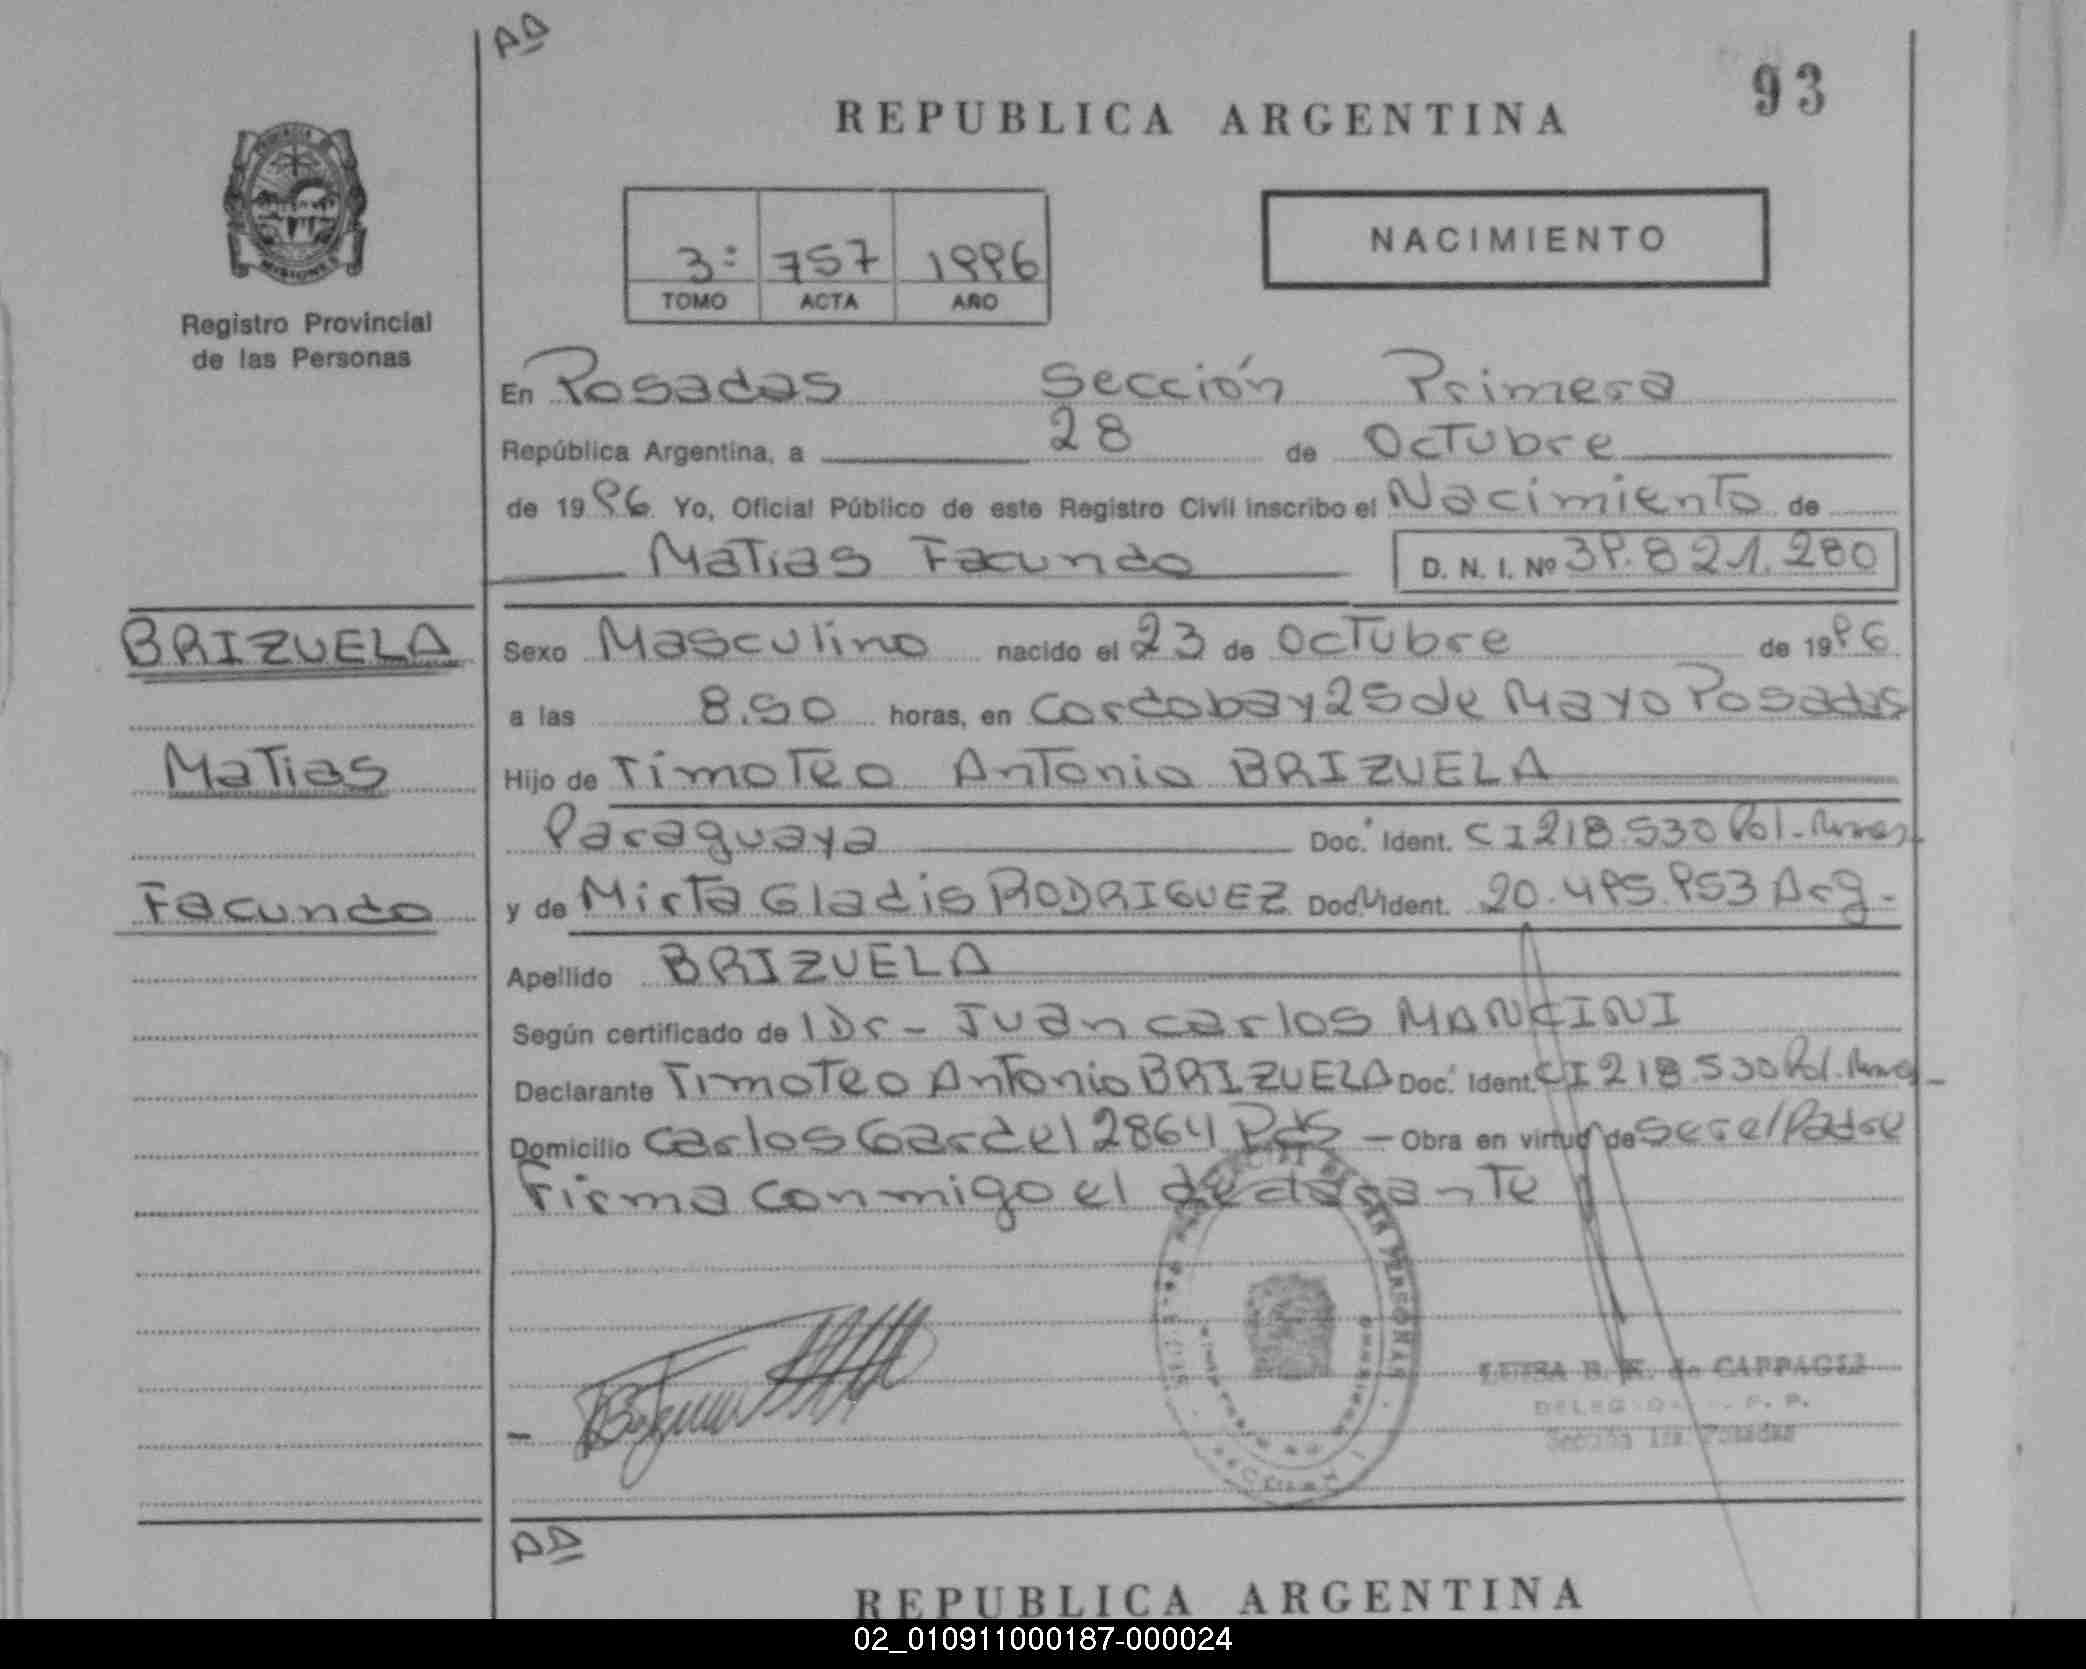 AD
93
REPUBLICA ARGENTINA
NACIMIENTO
3: 757 1996
TOMO ACTA AÑO
MISIONES
Registro Provincial
de las Personas
En Posadas Sección Primera
República Argentina, a 28 de Octubre
de 1996 Yo, Oficial Público de este Registro Civil inscribo el Nacimiento de
Matias Facundo D. N. I. Nº 39.821.280
BRIZUELA
Matias
Facundo
Sexo Masculino nacido el 23 de Octubre de 1996
a las 8.50 horas, en Cordoba y 25 de Mayo Posadas
Hijo de Timoteo Antonio BRIZUELA
Paraguaya Doc. Ident. CI 218.530 Pol.
y de Mirta Gladis RODRIGUEZ Doc. Ident. 20.495.953 Arg.
Apellido BRIZUELA
Según certificado de Dr. Juan Carlos MANCINI
Declarante Timoteo Antonio BRIZUELA Doc. Ident. CI 218.530 Pol.
Domicilio Carlos Gardel 2864 Pdas Obra en virtud de Ser el Padre
Firma conmigo el declarante
DE LAS PERSONAS
LUISA B. de
Sección 1ra Posadas
AD
REPUBLICA ARGENTINA
02_010911000187-000024